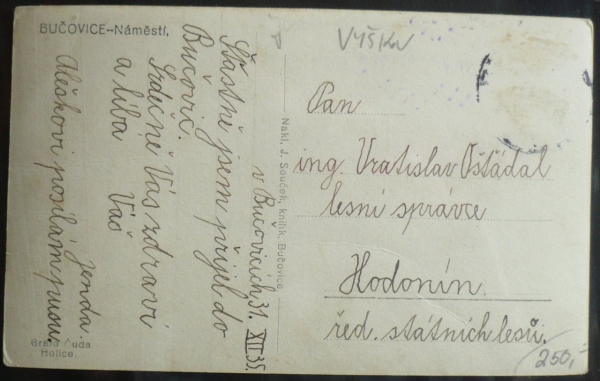 BUČOVICE–Náměstí.
VYŠKOV
v Bučovicích, 31. XII. 35.
Šťastně jsem přijel do
Bučovic.
Srdečně Vás zdraví
a líbá
Váš
Jenda.
Aleškovi posílám pusu.
Nakl. J. Souček, knihk. Bučovice.
Pan
ing. Vratislav Ošťádal
lesní správce
Hodonín.
řed. státních lesů.
Čuda
Holice.
250,-